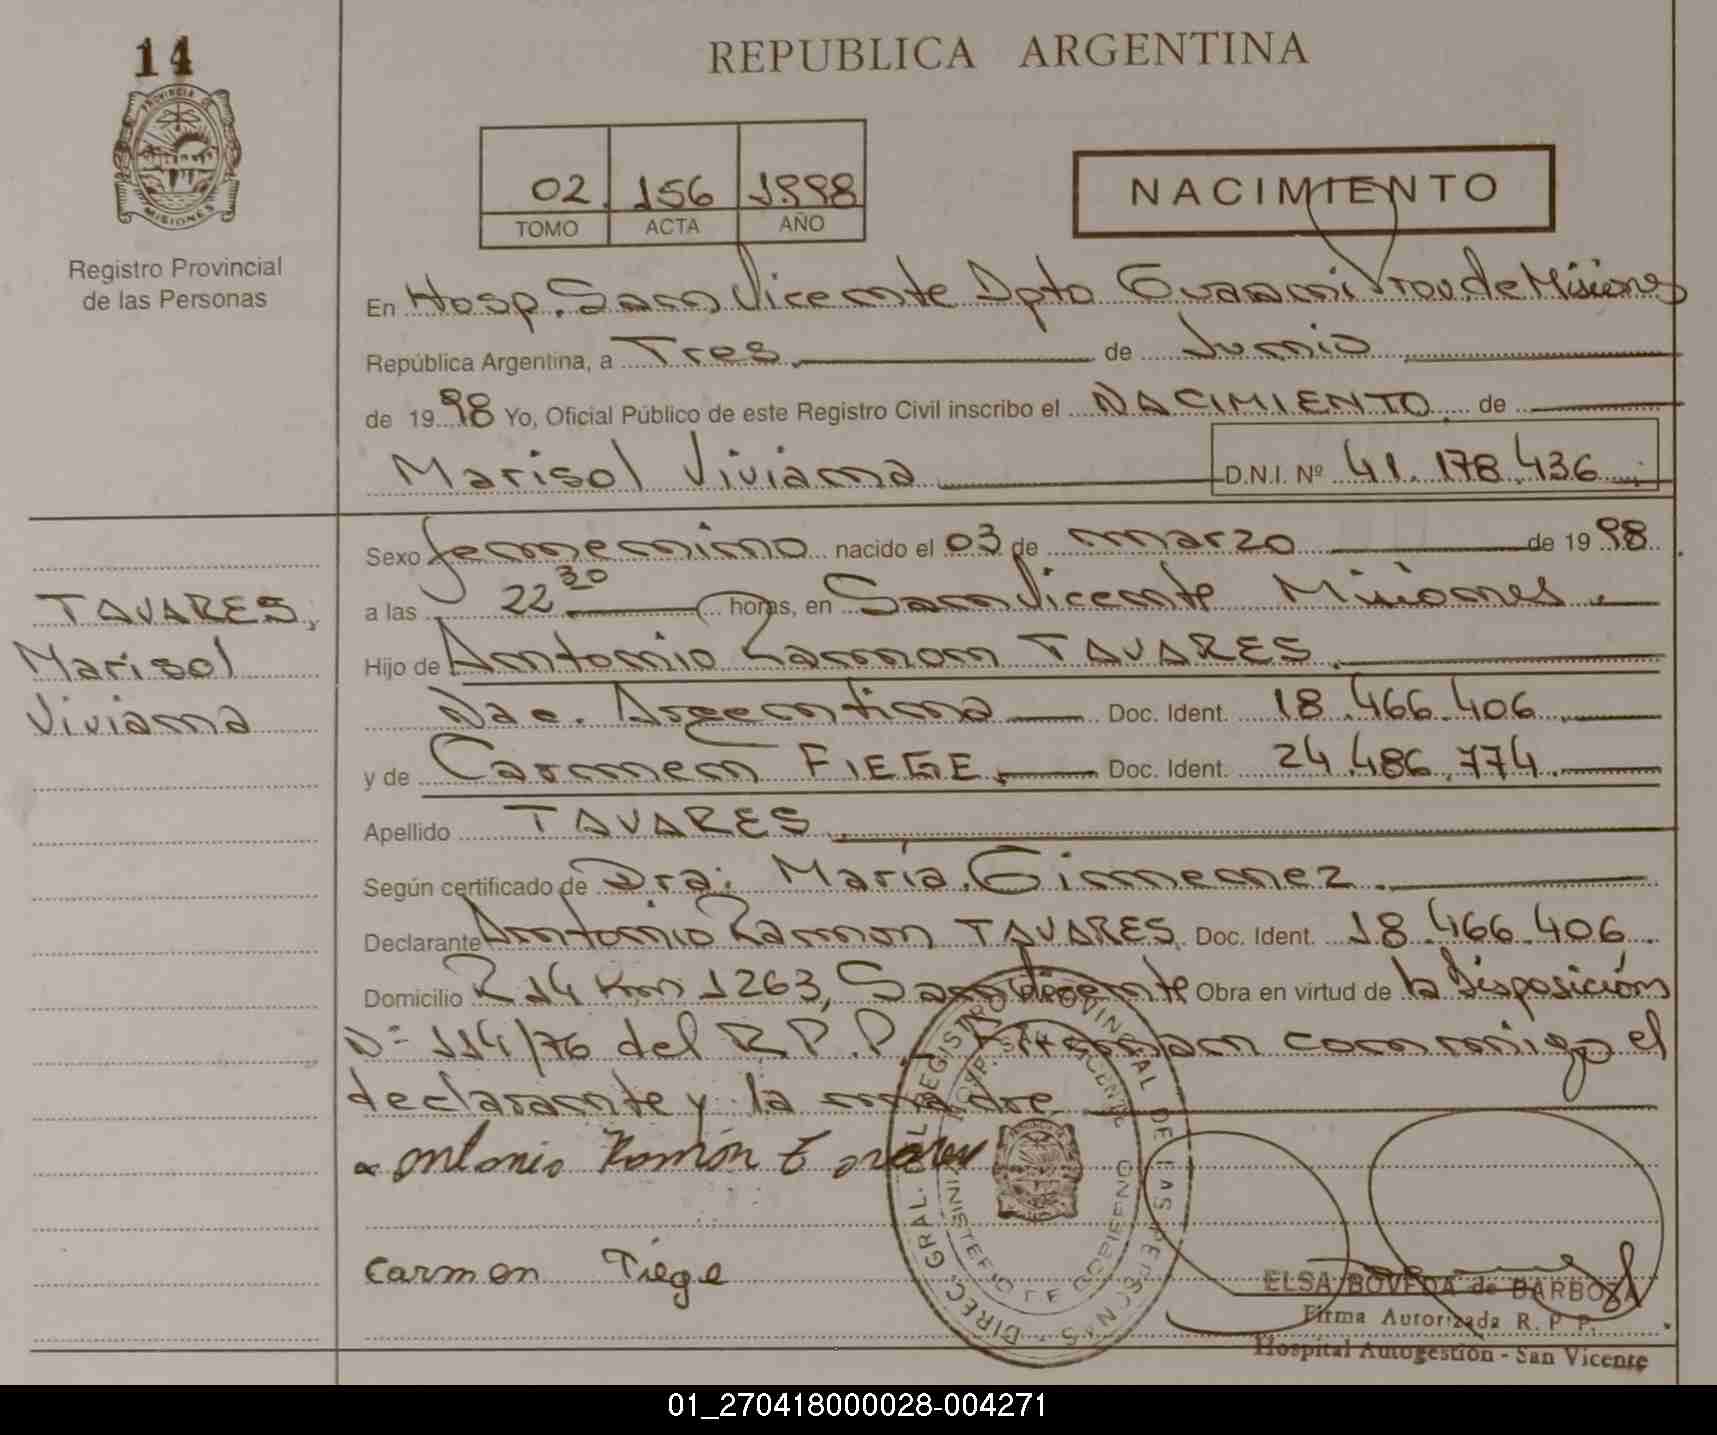 14
PROVINCIA DE
MISIONES
Registro Provincial
de las Personas
REPUBLICA ARGENTINA
02 156 1998
TOMO ACTA AÑO
NACIMIENTO
En Hosp. San Vicente Dpto Guarani Prov. de Misiones
República Argentina, a Tres de Junio
de 1998 Yo, Oficial Público de este Registro Civil inscribo el NACIMIENTO de
Marisol Viviana D.N.I. Nº 41.178.436
TAVARES,
Marisol
Viviana
Sexo femenino nacido el 03 de marzo de 1998
a las 22 30 horas, en San Vicente Misiones
Hijo de Antonio Ramon TAVARES
Nac. Argentina Doc. Ident. 18.466.406
y de Carmen FIEGE Doc. Ident. 24.486.774
Apellido TAVARES
Según certificado de Dra: María Gimenez
Declarante Antonio Ramon TAVARES Doc. Ident. 18.466.406
Domicilio R 14 Km 1263, San Vicente Obra en virtud de la Disposición
Nº 114/76 del R.P.P. Firman conmigo el
declarante y la madre
antonio Ramón
Carmen Fiege
DIREC. GRAL. DEL REGISTRO PROVINCIAL DE LAS PERSONAS
MINISTERIO DE GOBIERNO
ELSA BOVEDA de BARBOZA
Firma Autorizada R. P. P.
Hospital Autogestión - San Vicente
01_270418000028-004271